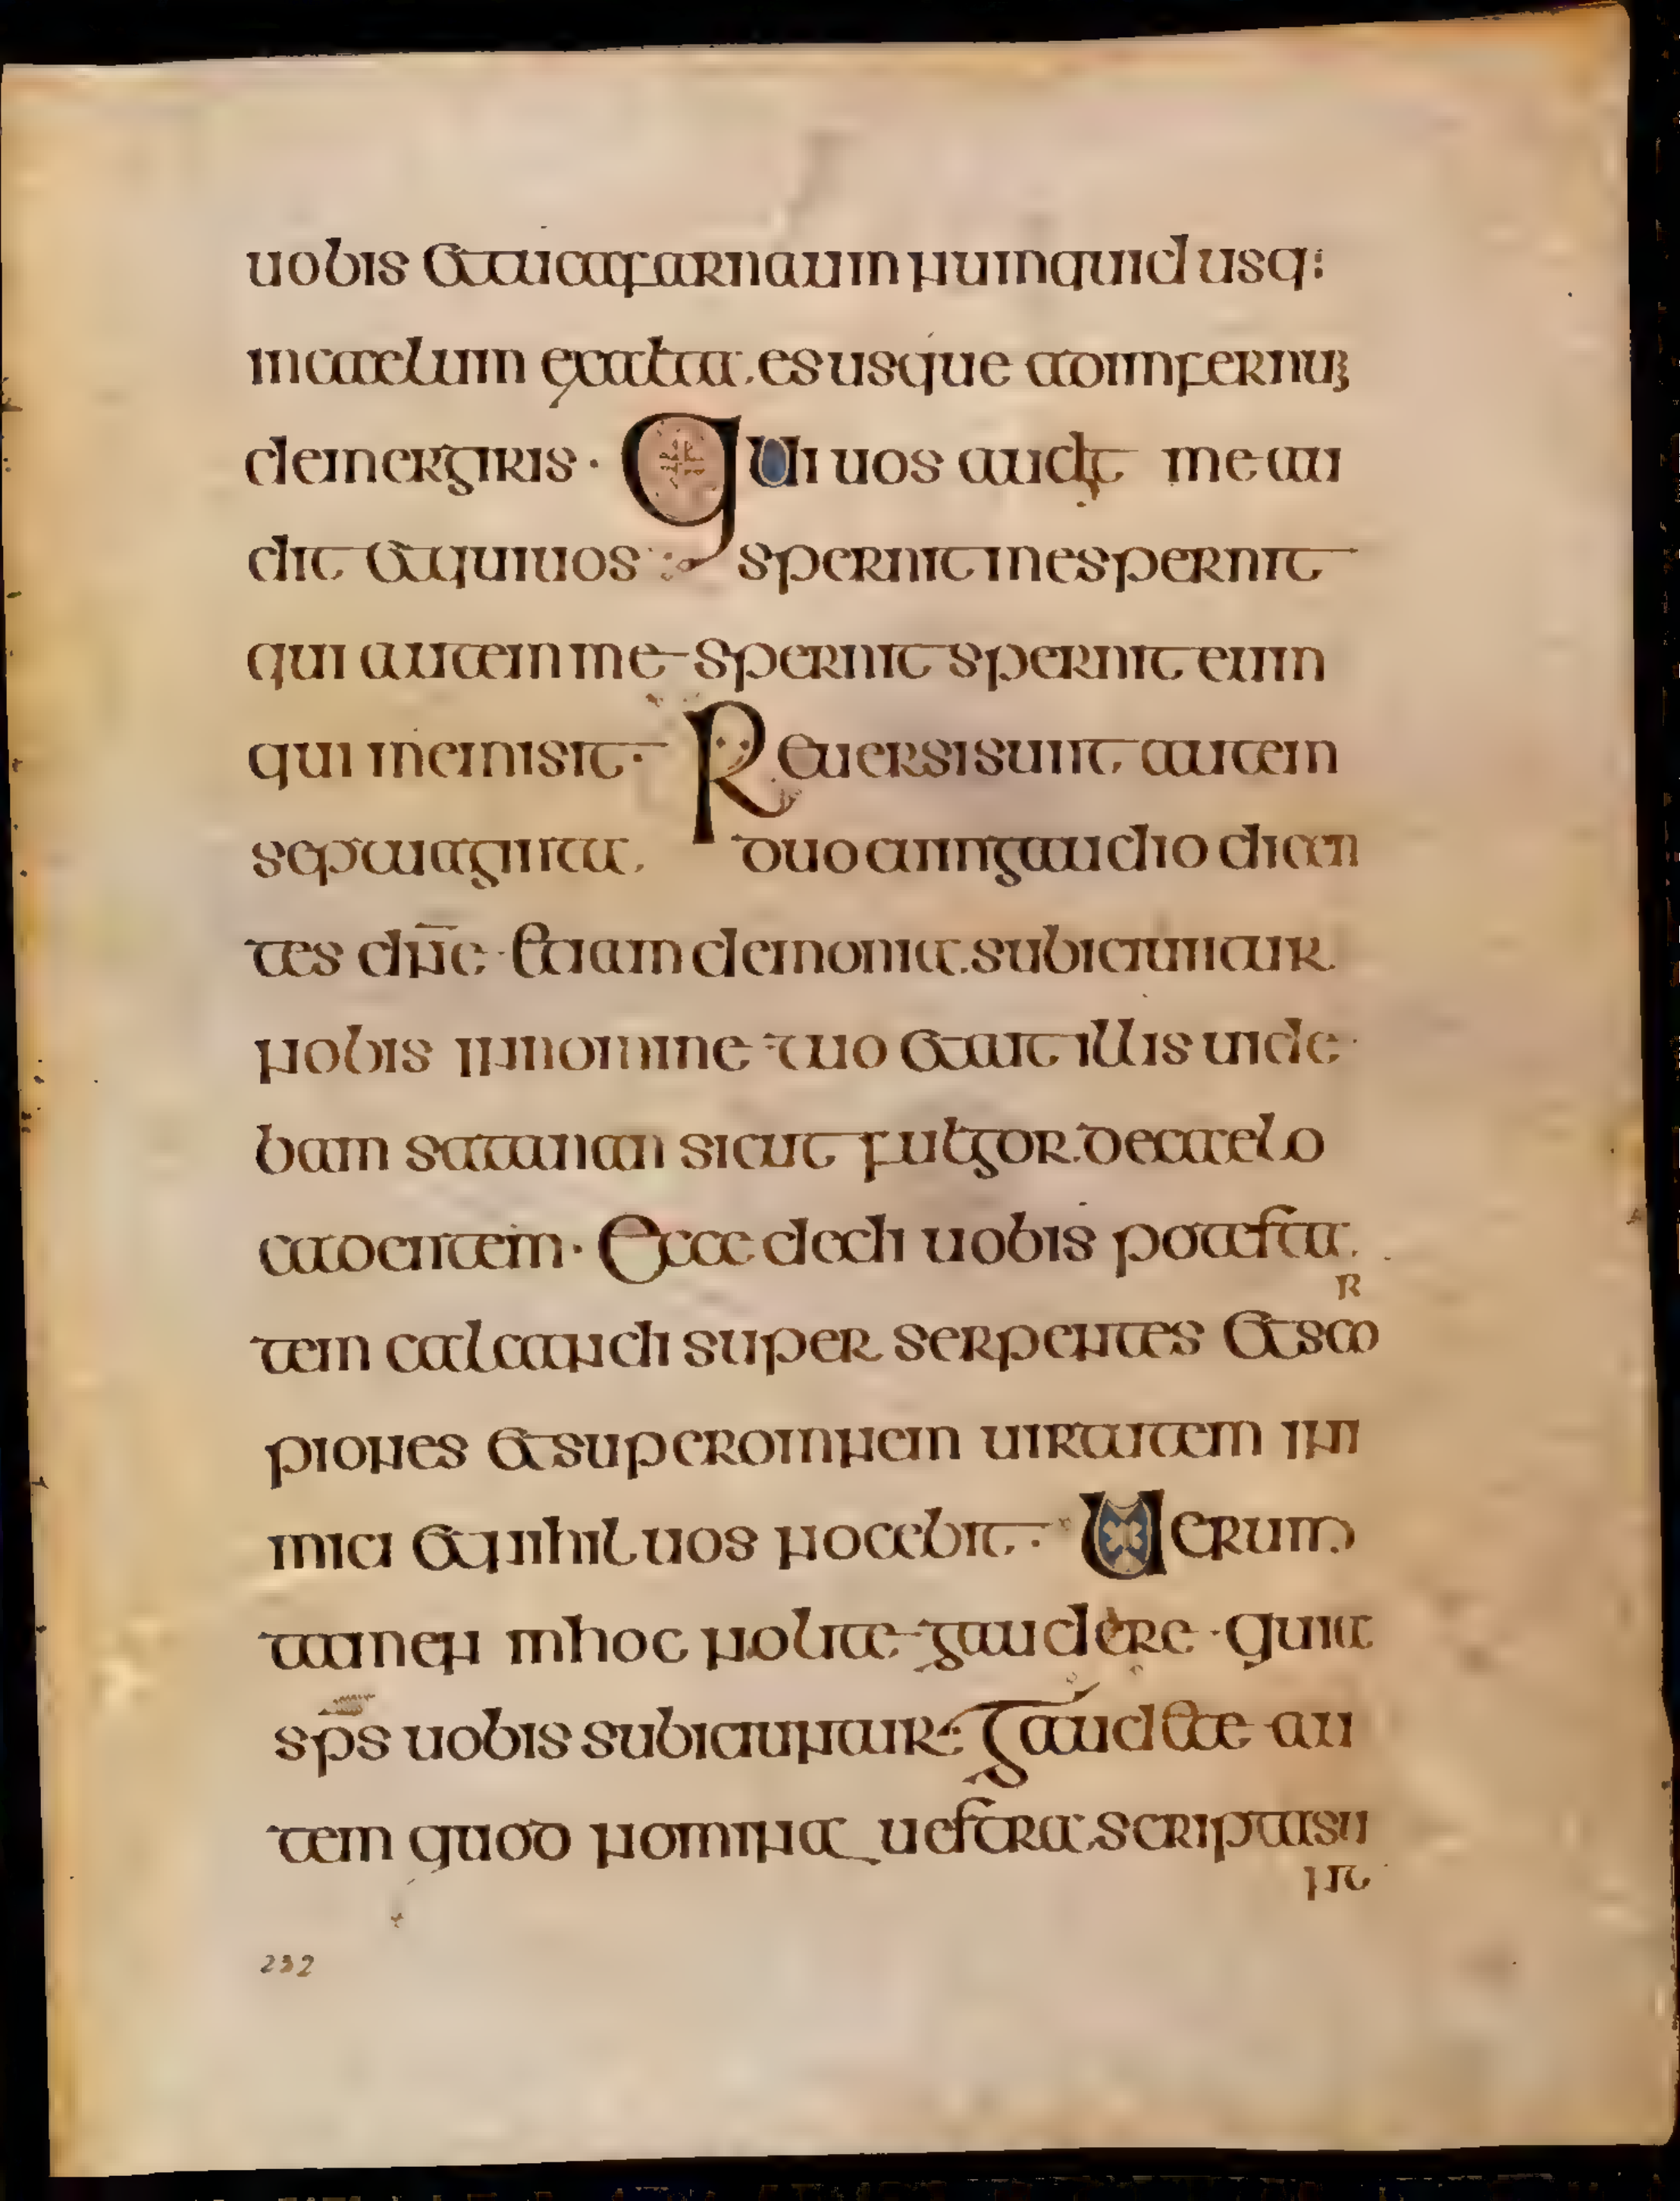 uobis & tu cafarnaum numquid usq:
in caelum exalta es usque ad infernu;
demergeris · Qui uos audit me au
dit & qui uos spernit me spernit
qui autem me spernit spernit eum
qui me misit · Reuersi sunt autem
septuaginta duo cum gaudio dicen
tes dn̄e · &iam demonia subiciuntur
nobis in nomine tuo & ait illis uide
bam satanan sicut fulgor de caelo
cadentem · Ecce dedi uobis potesta
tem calcandi super serpentes & sco
R
piones & super omnem uirtutem ini
mici & nihil uos nocebit · Uerum
tamen in hoc nolite gaudere · quia
sp̄s uobis subiciuntur · Gaud&e au
tem quod nomina uestra scripta su
nt
232